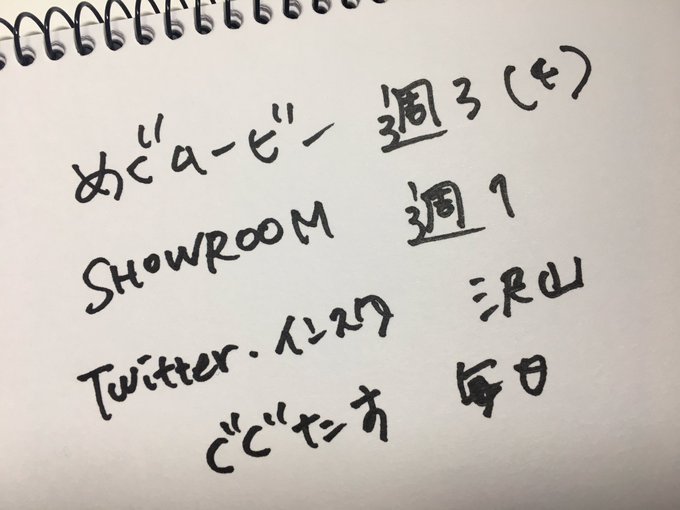 めぐムービー 週3
SHOWROOM 週1
Twitter・インスタ 沢山
ぐぐたす 毎日